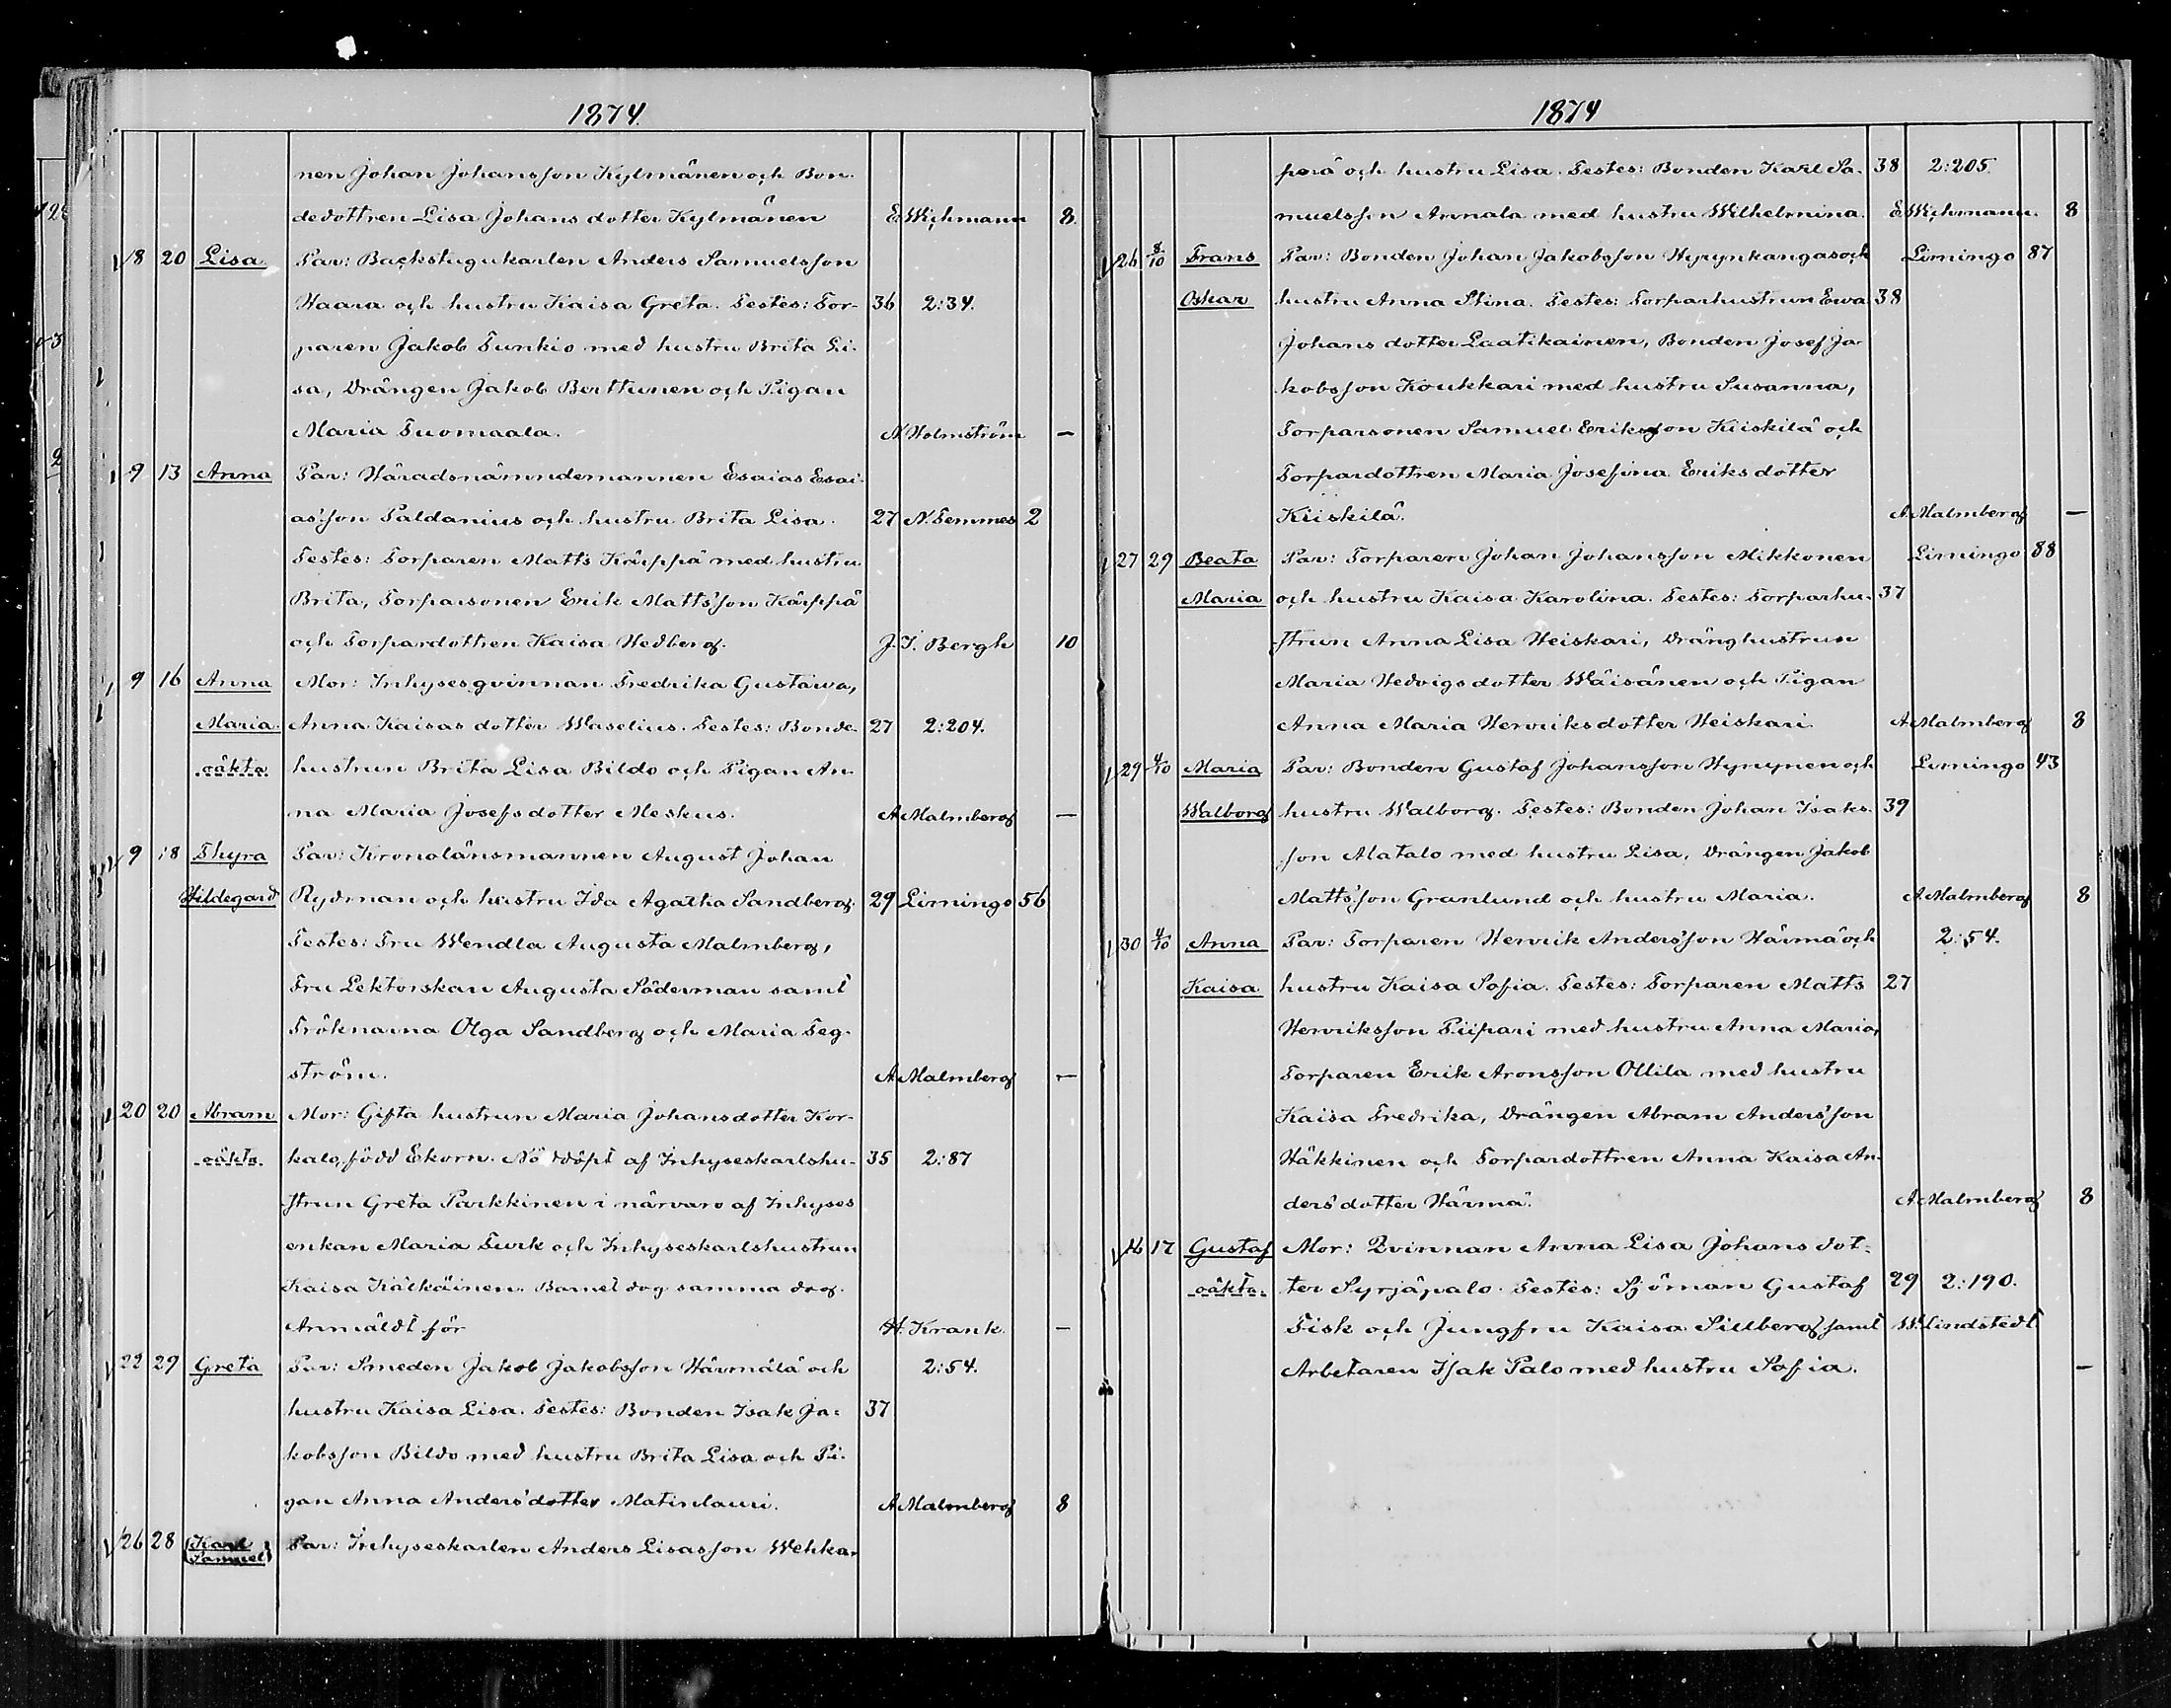 1874.
nen Johan Johansson Kylmänen och Bon-
dedottren Lisa Johansdotter Kylmänen E. Wichmann 8.
8 20 Lisa Par: Backstugukarlen Anders Samuelsson
Haara och hustru Kaisa Greta. Testes: Tor- 36 2:34.
paren Jakob Tunkio med hustru Brita Li-
sa, Drängen Jakob Berttunen och Pigan
Maria Tuomaala. N. Holmström —
9 13 Anna Par: Häradsnämndemannen Esaias Esai-
as'son Paldanius och hustru Brita Lisa. 27 N. Temmes 2
Testes: Torparen Matts Kärppä med hustru
Brita, Torparsonen Erik Matts'son Kärppä
och Torpardottren Kaisa Hedberg. J. I. Bergh 10
9 16 Anna Mor: Inhysesqvinnan Fredrika Gustava,
Maria Anna Kaisas dotter Waselius. Testes: Bonde- 27 2:204.
oäkta hustrun Brita Lisa Bildo och Pigan An-
na Maria Josefsdotter Meskus. A Malmberg —
9 18 Thyra Par: Kronolänsmannen August Johan
Hildegard Rydman och hustru Ida Agatha Sandberg. 29 Limingo 56
Testes: Fru Wendla Augusta Malmberg,
Fru Lektorskan Augusta Söderman samt
Fröknarna Olga Sandberg och Maria Teg-
ström. A Malmberg —
20 20 Abram Mor: Gifta hustrun Maria Johansdotter Kor-
oäkta kalo, född Ekorn. Nöddöpt af Inhyseskarlshu- 35 2:87
strun Greta Parkkinen i närvaro af Inhyses
enkan Maria Turk och Inhyseskarlshustrun
Kaisa Kälkäinen. Barnet dog samma dag.
Anmäldt för H. Krank. —
22 29 Greta Par: Smeden Jakob Jakobsson Härmälä och 2:54.
hustru Kaisa Lisa. Testes: Bonden Isak Ja- 37
kobsson Bildo med hustru Brita Lisa och Pi-
gan Anna Anders'dotter Matinlauri. A Malmberg 8
26 28 Karl Samuel Par: Inhyseskarlen Anders Lisasson Wehka-
1874
perä och hustru Lisa. Testes: Bonden Karl Sa- 38 2:205.
muelsson Annala med hustru Wilhelmina. E Wichmann. 8
26 8/10 Frans Par: Bonden Johan Jakobsson Hyrynkangas och Limingo 87
Oskar hustru Anna Stina. Testes: Torparhustrun Ewa 38
Johansdotter Laatikainen, Bonden Josef Ja-
kobsson Koukkari med hustru Susanna,
Torparsonen Samuel Eriksson Kiiskilä och
Torpardottren Maria Josefina Eriksdotter
Kiiskilä. A Malmberg —
27 29 Beata Par: Torparen Johan Johansson Mikkonen Limingo 88
Maria och hustru Kaisa Karolina. Testes: Torparhu- 37
strun Anna Lisa Heiskari, Dränghustrun
Maria Hedvigsdotter Wäisänen och Pigan
Anna Maria Henriksdotter Heiskari. A Malmberg 8
29 4/10 Maria Par: Bonden Gustaf Johansson Hynynen och Limingo 43
Walborg hustru Walborg. Testes: Bonden Johan Isaks- 39
son Matalo med hustru Lisa, Drängen Jakob
Matts'son Granlund och hustru Maria. A Malmberg 8
30 4/10 Anna Par: Torparen Henrik Anders'son Härmä och 2:54.
Kaisa hustru Kaisa Sofia. Testes: Torparen Matts 27
Henriksson Piipari med hustru Anna Maria,
Torparen Erik Aronsson Ollila med hustru
Kaisa Fredrika, Drängen Abram Anders'son
Häkkinen och Torpardottren Anna Kaisa An-
ders'dotter Härmä. A Malmberg 8
16 17 Gustaf Mor: Qvinnan Anna Lisa Johansdot-
oäkta. ter Syrjäpalo. Testes: Sjöman Gustaf 29 2:190.
Fisk och Jungfru Kaisa Sillberg samt W. Lindstedt
Arbetaren Isak Palo med hustru Sofia. —